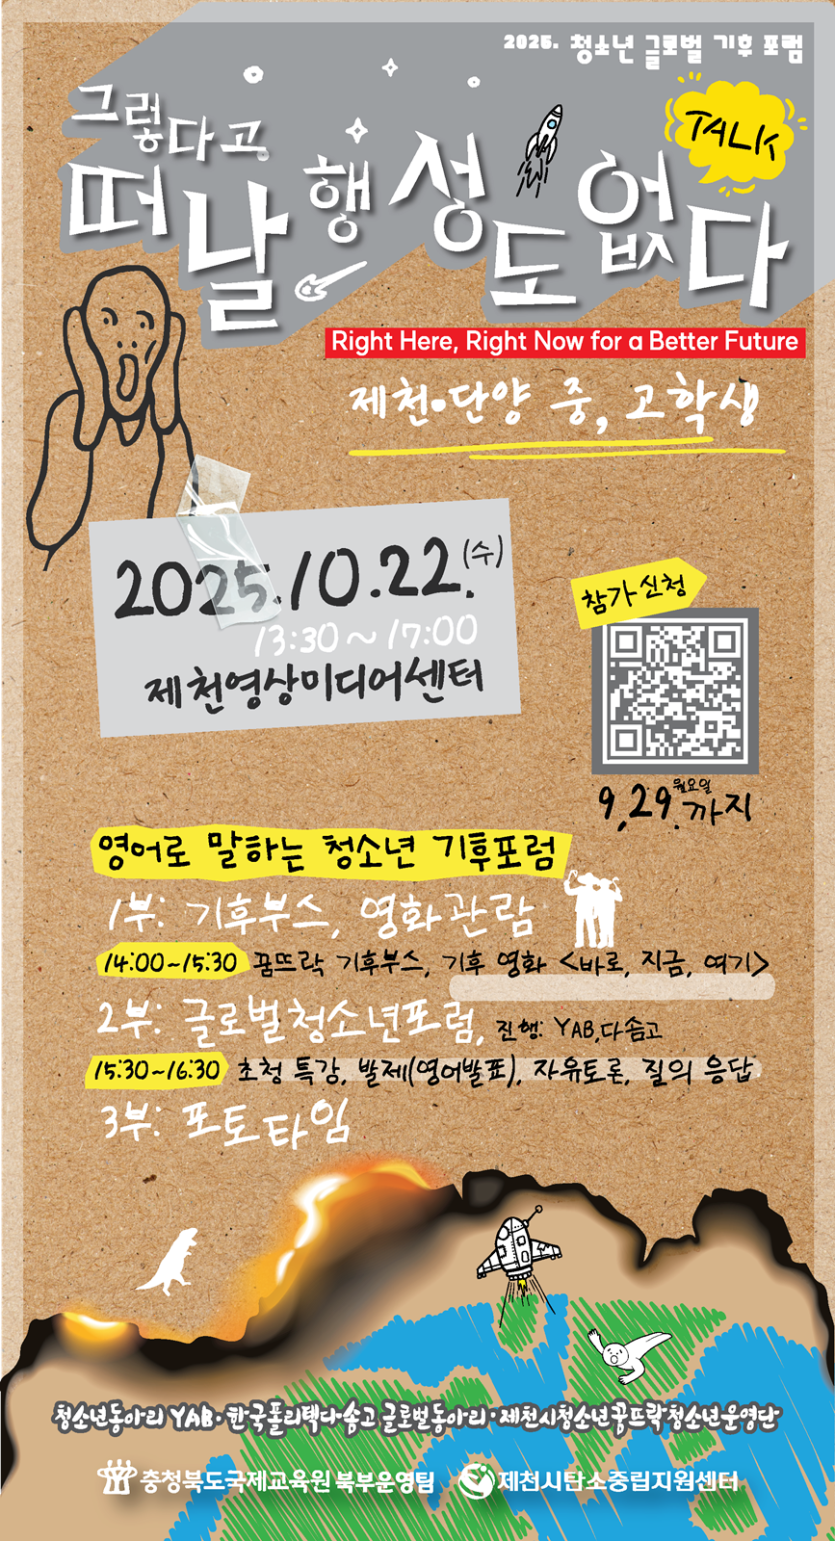 2025. 청소년 글로벌 기후 포럼
그렇다고
TALK
떠날 행성도 없다
Right Here, Right Now for a Better Future
제천•단양 중, 고학생
2025.10.22.(수)
13:30~17:00
제천영상미디어센터
참가신청
9.29.월요일까지
영어로 말하는 청소년 기후포럼
1부: 기후부스, 영화관람
14:00~15:30 꿈뜨락 기후부스, 기후 영화 <바로, 지금, 여기>
2부: 글로벌청소년포럼, 진행: YAB,다솜고
15:30~16:30 초청 특강, 발제(영어발표), 자유토론, 질의 응답
3부: 포토타임
청소년동아리 YAB·한국폴리텍다솜고 글로벌동아리·제천시청소년꿈뜨락청소년운영단
충청북도국제교육원 북부운영팀 제천시탄소중립지원센터